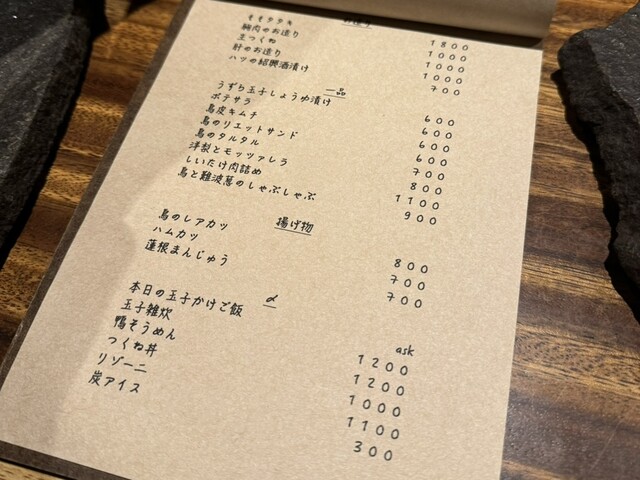 お造り
ももタタキ 1800
胸肉のお造り 1000
生つくね 1000
肝のお造り 1000
ハツの紹興酒漬け 700
一品
うずら玉子しょうゆ漬け 600
ポテサラ 600
鳥皮キムチ 600
鳥のリエットサンド 600
鳥のタルタル 700
洋梨とモッツァレラ 800
しいたけ肉詰め 1100
鳥と難波葱のしゃぶしゃぶ 900
揚げ物
鳥のレアカツ 800
ハムカツ 700
蓮根まんじゅう 700
〆
本日の玉子かけご飯 ask
玉子雑炊 1200
鴨そうめん 1200
つくね丼 1000
リゾーニ 1100
炭アイス 300